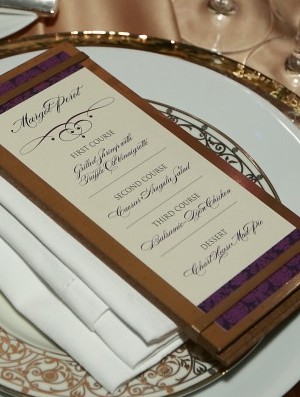 Margot Perot
FIRST COURSE
Grilled Shrimp with
Truffle Vinaigrette
SECOND COURSE
Caesar Arugula Salad
THIRD COURSE
Balsamic Dijon Chicken
DESSERT
Chart House Mud Pie